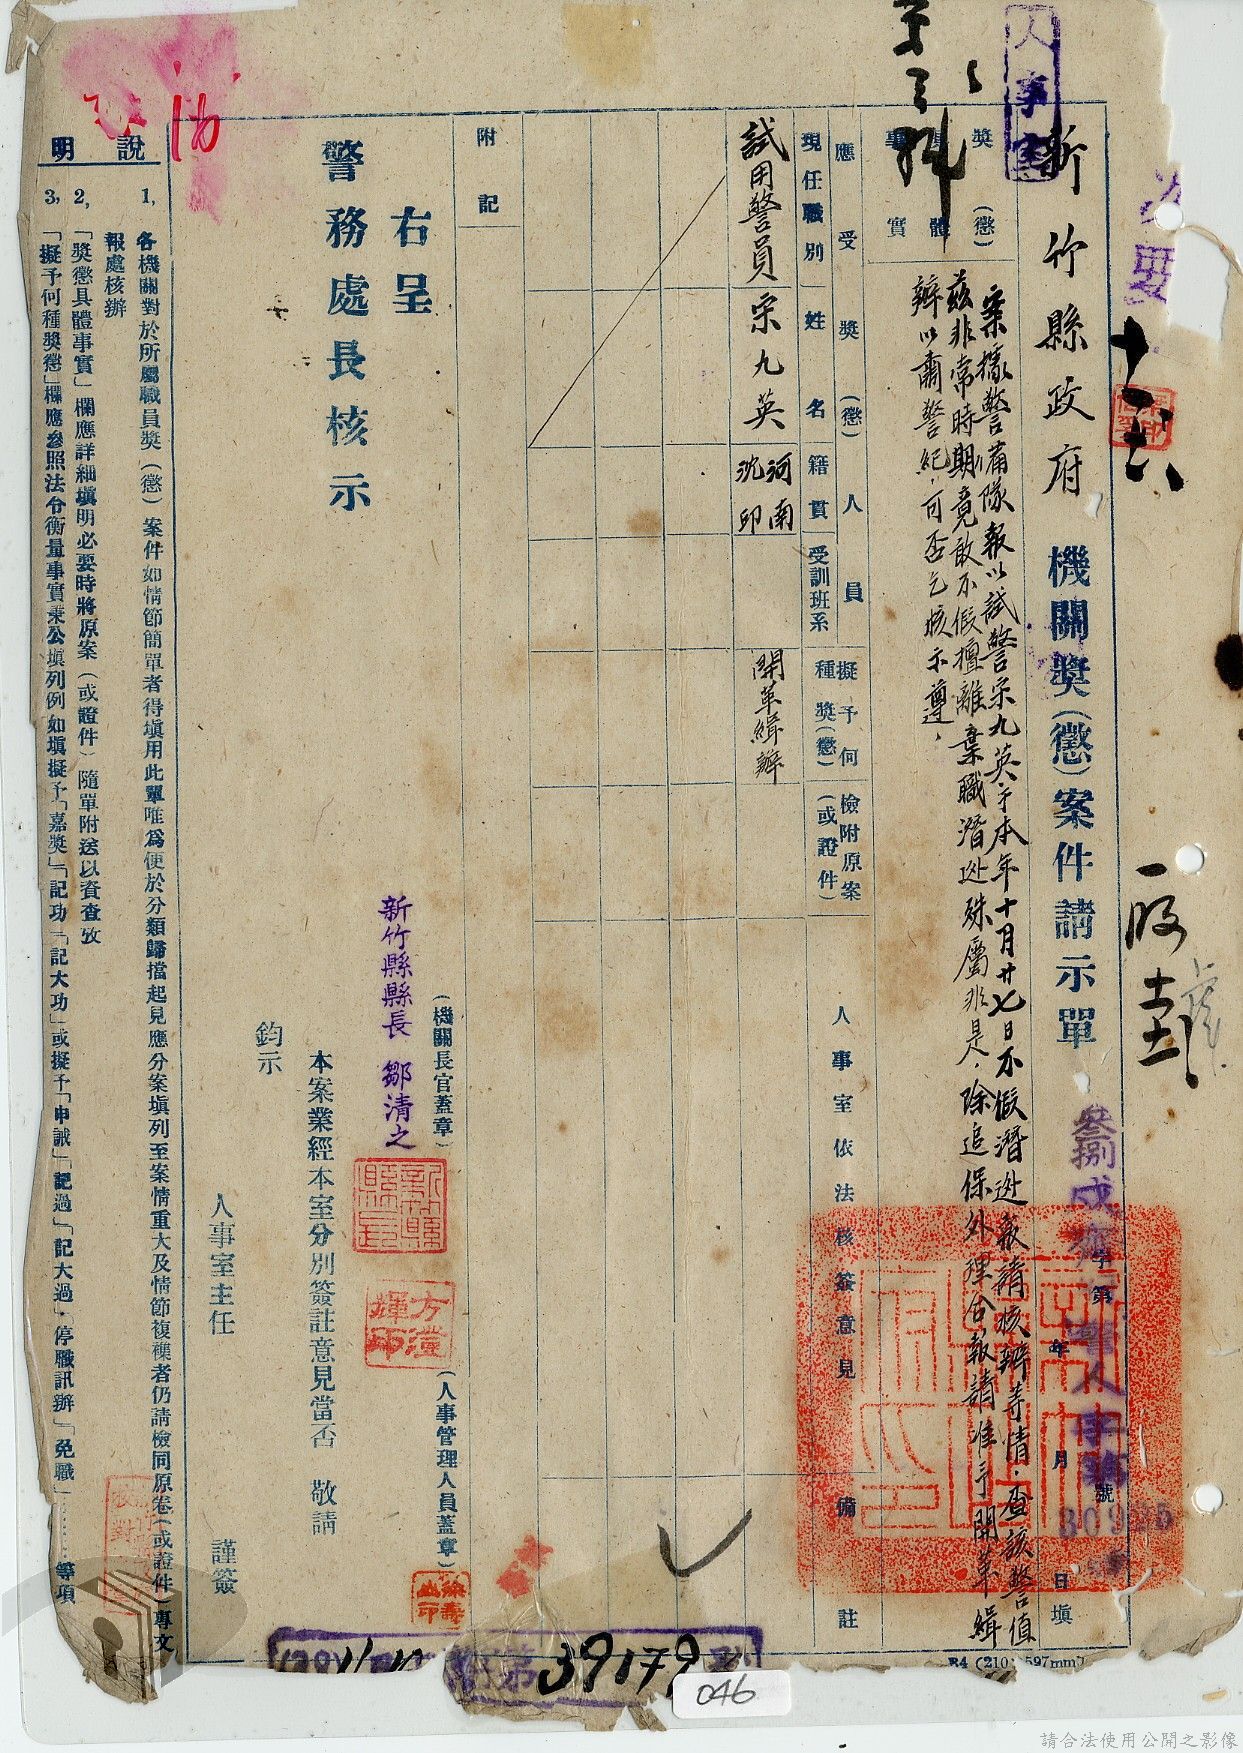 人事室
新竹縣政府 機關獎(懲)案件請示單
叁捌戌 字第 警人字第 號
年 月 日填
30925
獎(懲)具體事實
案據警備隊報以試警宗九英于本年十月廿七日不假潛逃報請核辦等情．查該警值
茲非常時期竟敢不假擅離棄職潛逃殊屬非是．除追保外理合報請准予開革緝
辦以肅警紀．可否乞核示遵．
應受獎(懲)人員
現任職別
姓名
籍貫
受訓班系
擬予何種獎(懲)
檢附原案(或證件)
人事室依法核簽意見
備註
試用警員
宗九英
河南
沈印
開革緝辦
附記
右呈
警務處長核示
(機關長官蓋章)
新竹縣縣長 鄒清之
(人事管理人員蓋章)
本案業經本室分別簽註意見當否 敬請
鈞示
人事室主任 謹簽
說明
1, 各機關對於所屬職員獎(懲)案件如情節簡單者得填用此單唯為便於分類歸擋起見應分案填列至案情重大及情節複襍者仍請檢同原卷(或證件)專文
報處核辦
2, 「獎懲具體事實」欄應詳細填明必要時將原案(或證件)隨單附送以資查攷
3, 「擬予何種獎懲」欄應參照法令衡量事實秉公填列例如填擬予「嘉獎」「記功」「記大功」或擬予「申誡」「記過」「記大過」．停職訊辦」「免職」……等項
第39179
046
B4 (210 597mm)
請合法使用公開之影像